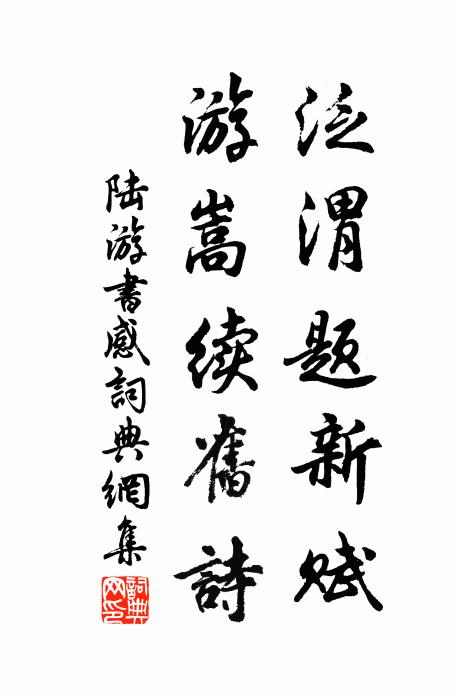 泛渭題新賦
游嵩續舊詩
陆游書感詞典網集
詞典網印